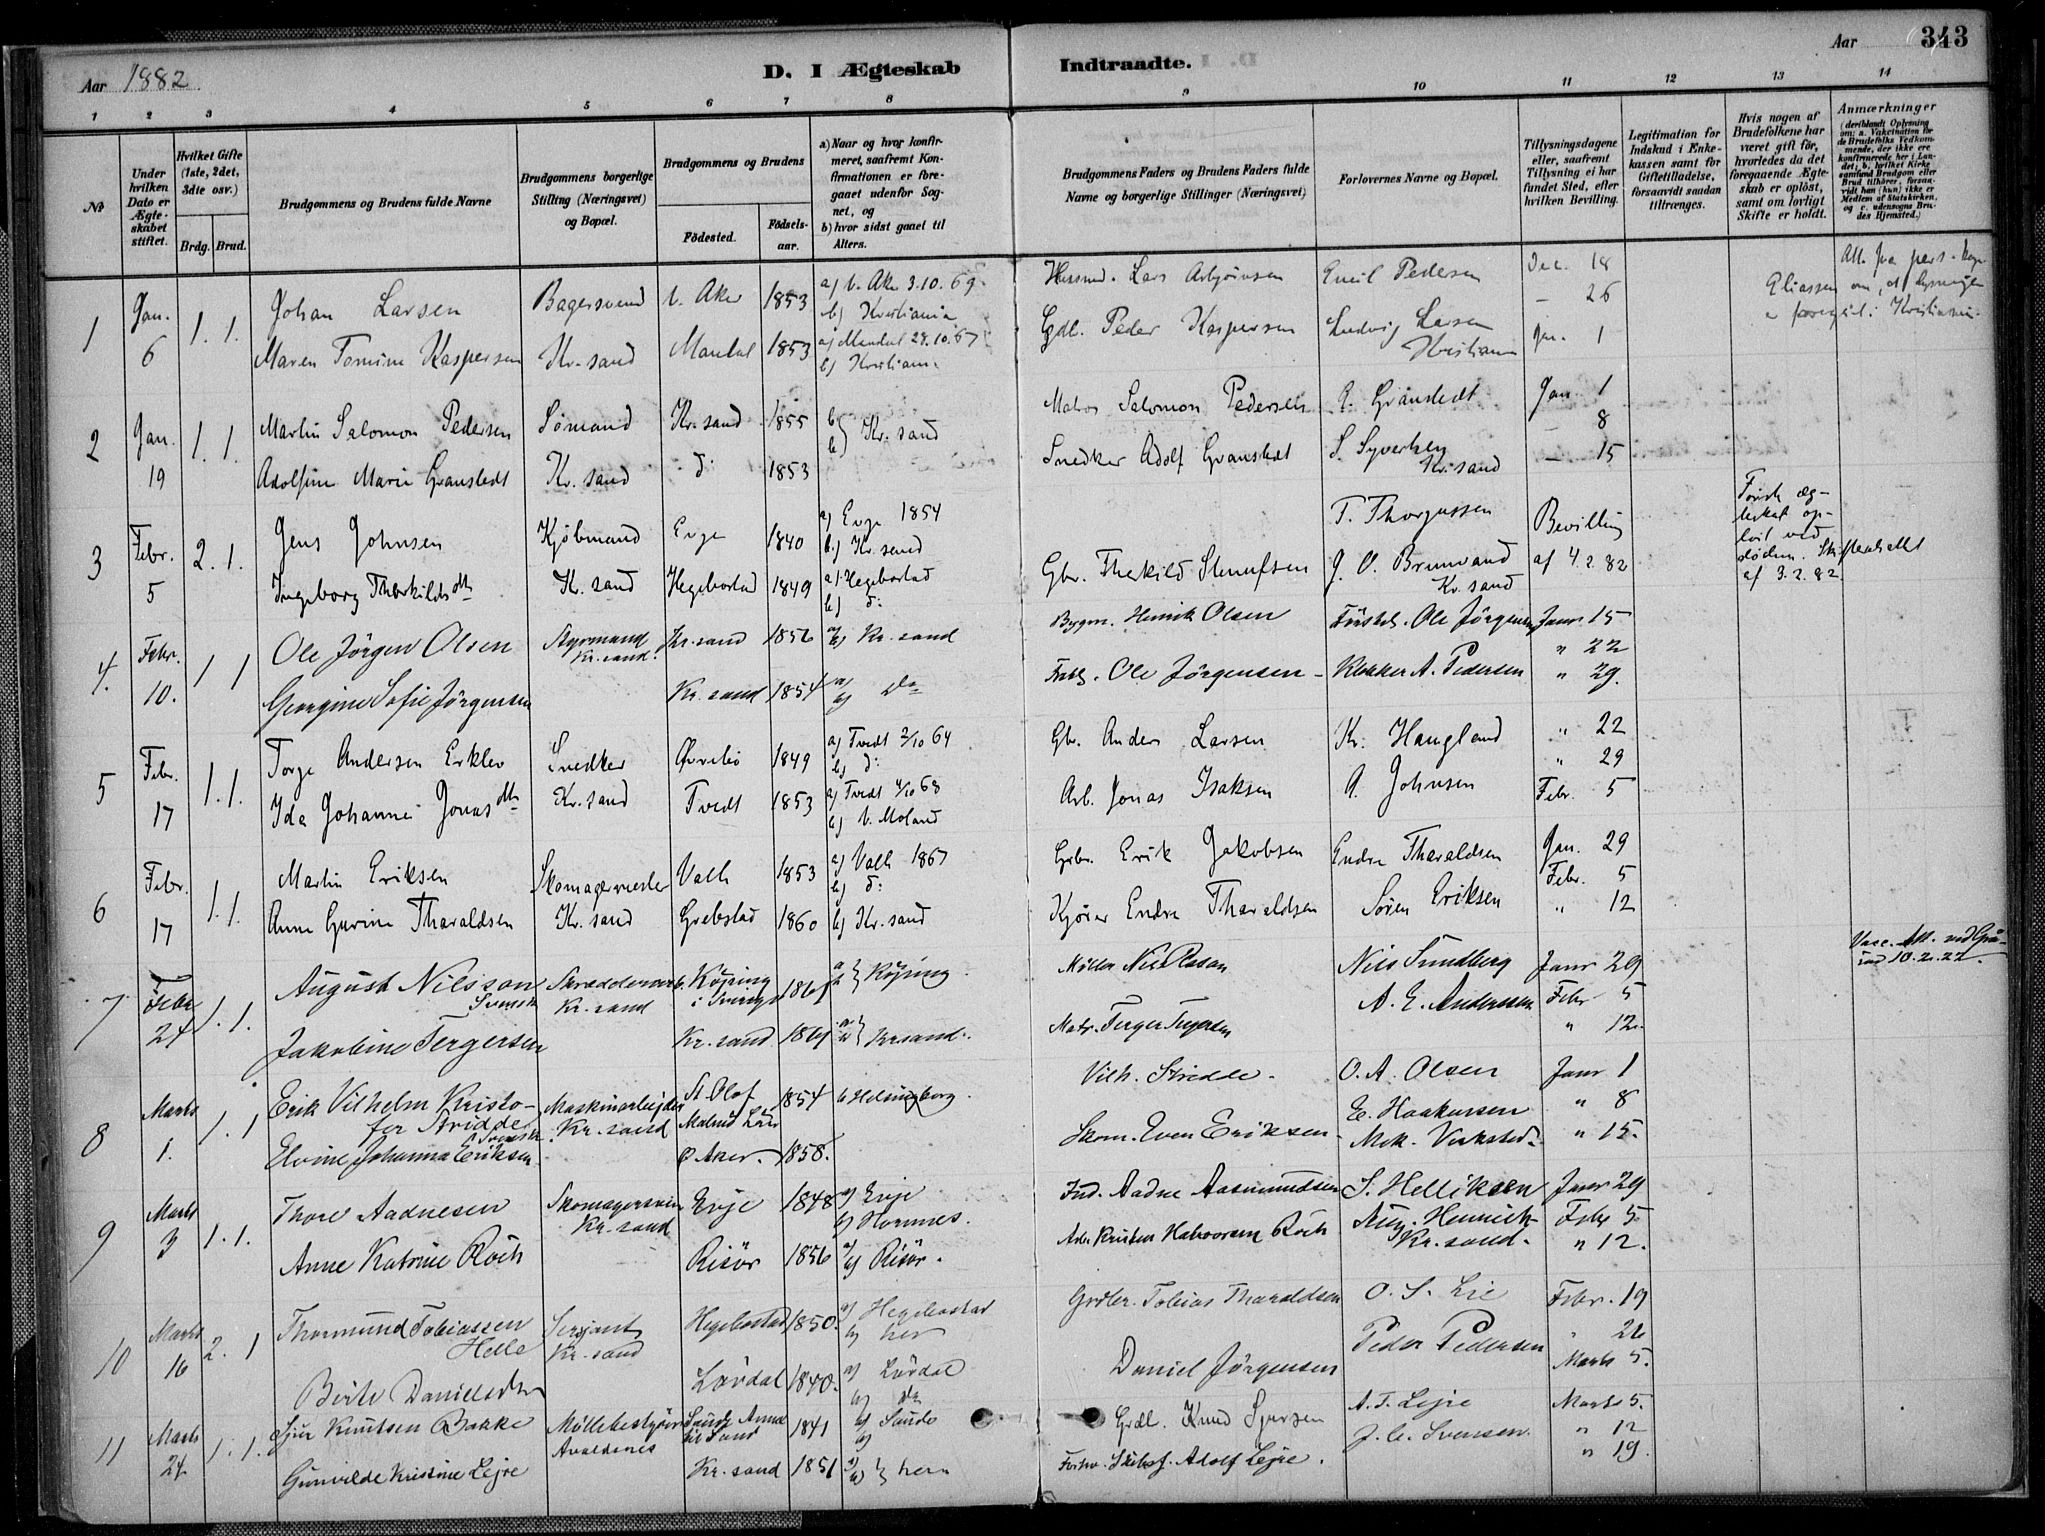 Aar 1882
D. I Ægteskab Indtraadte.
Aar 343
1 2 3 4 5 6 7 8 9 10 11 12 13 14
№
Under hvilken Dato er Ægteskabet stiftet.
Hvilket Gifte (1ste, 2det, 3die osv.)
Brdg. Brud.
Brudgommens og Brudens fulde Navne
Brudgommens borgerlige Stilling (Næringsvei) og Bopæl.
Brudgommens og Brudens
Fødested. Fødselsaar.
a) Naar og hvor konfirmeret, saafremt Konfirmationen er foregaaet udenfor Sognet, og
b) hvor sidst gaaet til Alters.
Brudgommens Faders og Brudens Faders fulde Navne og borgerlige Stillinger (Næringsvei)
Forlovernes Navne og Bopæl.
Tillysningsdagene eller, saafremt Tillysning ei har fundet Sted, efter hvilken Bevilling.
Legitimation for Indskud i Enkekassen samt for Giftetilladelse, forsaavidt saadan tiltrænges.
Hvis nogen af Brudefolkene har været gift før, hvorledes da det foregaaende Ægteskab er opløst, samt om lovligt Skifte er holdt.
Anmærkninger (deriblandt Oplysning om: a. Vakcination for de Brudefolks Vedkommende, der ikke ere konfirmerede her i Landet; b. hvilket Kirkesamfund Brudgom eller Brud tilhører, forsaavidt han (hun) ikke er Medlem af Statskirken, og c. udensogns Brudes Hjemsted.)
1 Jan. 6 1. 1. Johan Larsen Bagersvend V. Aker 1853 a) V. Aker 3.10.69 b) Kristiania Lars Asbjørnsen Emil Pedersen Dec. 18
Maren Tomine Kaspersen Kr. sand Mandal 1853 a) Mandal 29.10.67 b) Kristiania Gdb. Peder Kaspersen Ludvig Larsen Kristiania – 26 Jan. 1
Eliassen om, at lysningen
i Kristiania
2 Jan. 19 1. 1. Martin Salomon Pedersen Sømand Kr. sand 1855 b) Kr. sand Matros Salomon Pedersen A. Granstedt Jan. 1
Adolfine Marie Granstedt Kr. sand d: 1853 Snedker Adolf Granstedt S. Syvertsen Kr. sand – 8 – 15
3 Febr. 5 2. 1. Jens Johnsen Kjøbmand Evje 1840 a) Evje 1854 b) Kr. sand T. Thorgussen Bevilling
Ingeborg Therkildsdtr Kr. sand Hegebostad 1849 a) Hegebostad b) d: Gbr. Thekild J. O. Brunvand Kr. sand af 4.2.82
Første ægteskab opløst ved døden. Skifteattest af 3.2.82
4. Febr. 10. 1 1 Ole Jörgen Olsen Styrmand Kr. sand. Kr. sand 1856 b) Kr. sand Bygm. Henrik Olsen Ole Jörgensen Janr 15
Georgine Sofie Jörgensen Kr. sand 1854 a) b) do Ole Jörgensen – Klokker A. Pedersen " 22 " 29.
5 Febr. 17 1. 1. Torje Andersen Erklev Snedker Øvrebø 1849 a) Tvedt 2/10 64 b) d: Gbr. Anders Larsen Kr. Haugland " 22
Ida Johanne Jonasdtr Kr. sand Tvedt 1853 a) Tvedt 4/10 68 b) V. Moland Arb. Jonas Isaksen A. Johnsen " 29 Febr. 5
6 Febr. 17 1. 1. Martin Eriksen Skomagermester Valle 1853 a) Valle 1867 b) d: Gbr. Erik Jakobsen Endre Tharaldsen Jan. 29
Anne Gurine Tharaldsen Kr. sand Grebstad 1860 b) Kr. sand Kjører Endre Tharaldsen Søren Eriksen Febr. 5 " 12
7 Febr 24 1. 1. August Nilsson Svensk Kr. sand Köping i Sverige a b } Köping Nils Sundberg Janr 29
Jakobine Tergersen Kr. sand a b } Krsand. Matr. Terger Tergersen A. E. Andersen Febr 5 " 12.
Vacc. Att.
8 Marts 1. 1. 1 Erik Vilhelm Kristofer Stridde Svensk. Maskinarbejder Kr. sand St Olof Malmö Län 1854 b Helsingborg. Vilh. Stridde. O. A. Olsen Janr 1
Elvine Johanna Eriksen Ø Aker. 1858. Skom. Even Eriksen. E. Haakonsen Mek. Verksted. " 8 " 15.
9 Marts 3 1. 1. Thore Aadnesen Skomagersvend Kr. sand Evje 1848 a) Evje b) Hornnes. Ind. Aadne Aasmundsen S. Helliksen Janr 29
Anne Katrine Röch Risör 1856 a) b) Risör. Arb. Kristen Halvorsen Röch Aug. Henrich Kr. sand. Febr 5. " 12.
10 Marts 16 2. 1 Thormund Tobiassen Helle Sersjant Kr. sand Hegebostad 1850. a) Hegebostad b) her Grdbr. Tobias Tharaldsen O. S. Lie Febr. 19
Berte Danielsdtr Lördal 1840. a) Lördal b) do Daniel Jörgensen Peder Pedersen " 26 Marts 5.
11 Marts 24 1. 1. Sjur Knutsen Bakke Möllebestyrer Avaldsnes Saude 1841 a) Saude b) Grdb. Knud Sjursen A. T. Lejre Marts 5.
Gunvilde Kristine Lejre Kr. sand 1851 a) b) } her Adolf Lejre. J. C. Svensen " 12 " 19.